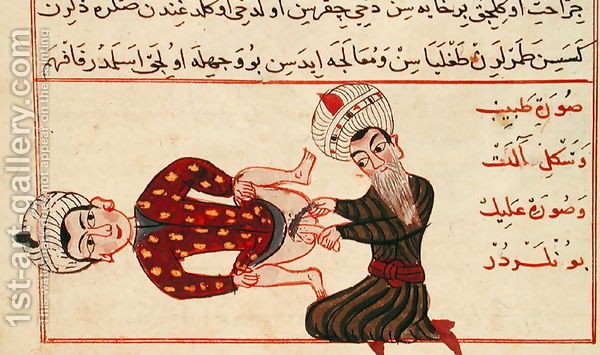 جراحت اوكلجق برخايه سن دخي چقرسن اولدخي اوكلد غندن صكره دلرن
كسسن طمرلرن طغليا سن و معالجه ايدسن بو وجهله اولجق اسلمدر فافهم
صورة طبيب
وشكل آلت
وصورة عليل
بونلردر
1st-art-gallery.com